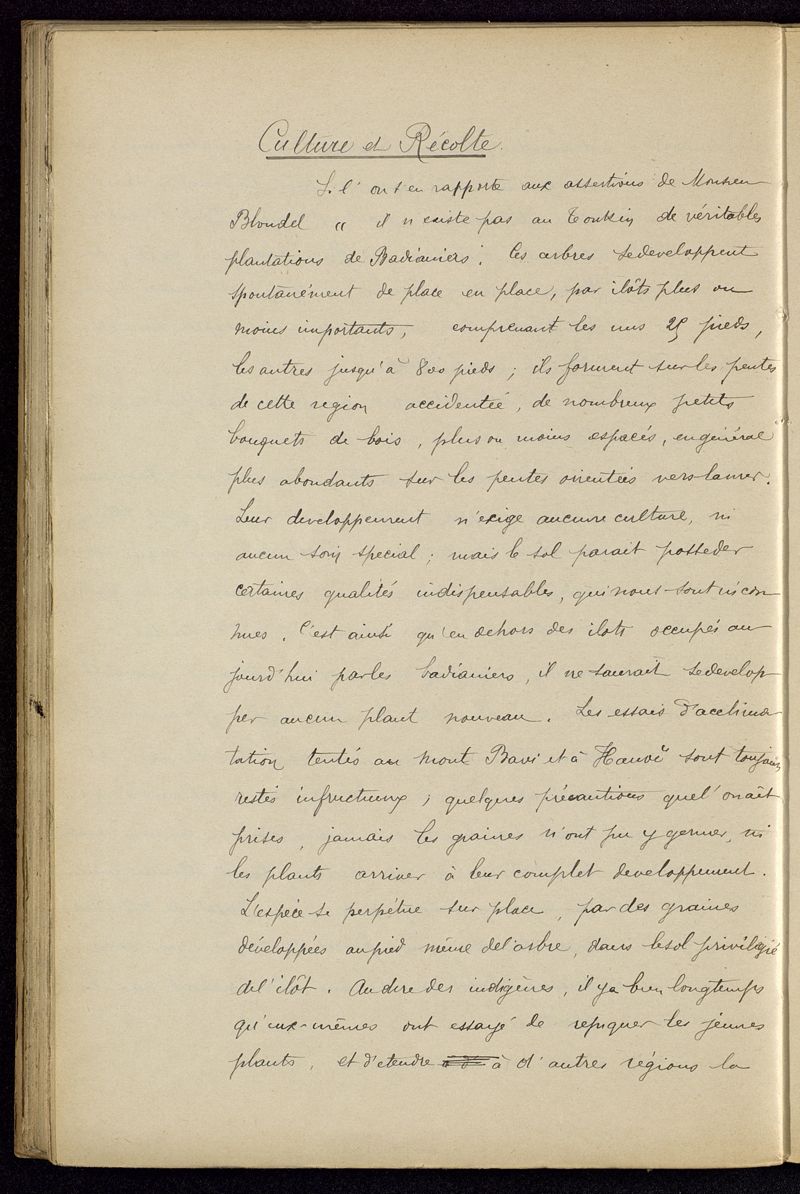 Culture et Récolte.
Si l'on s'en rapporte aux assertions de Monsieur
Blondel " il n'existe pas au Tonkin de véritables
plantations de Badianiers. Ces arbres se developpent
spontanément de place en place, par ilôts plus ou
moins importants, comprenant les uns 25 pieds,
les autres jusqu'à 800 pieds ; ils forment sur les pentes
de cette region accidentée, de nombreux petits
bouquets de bois, plus ou moins espacés, en général
plus abondants sur les pentes orientées vers la mer.
Leur developpement n'exige aucune culture, ni
aucun soin special ; mais le sol parait posseder
certaines qualités indispensables, qui nous sont incon
nues. C'est ainsi qu'en dehors des ilots occupés au
jourd'hui par les badianiers, il ne saurait se develop
per aucun plant nouveau. Les essais d'acclima
tation tentés au mont Bavi et à Hanoï sont toujours
restés infructueux ; quelques précautions quel'on ait
prises, jamais les graines n'ont pu y germer, ni
les plants arriver à leur complet developpement.
L'espèce se perpétue sur place, par des graines
développées au pied même de l'arbre, dans le sol privilégié
de l'ilôt. Au dire des indigènes, il y a bien longtemps
qu'eux-mêmes ont essayé de repiquer les jeunes
plants, et d'etendre à d'autres régions la